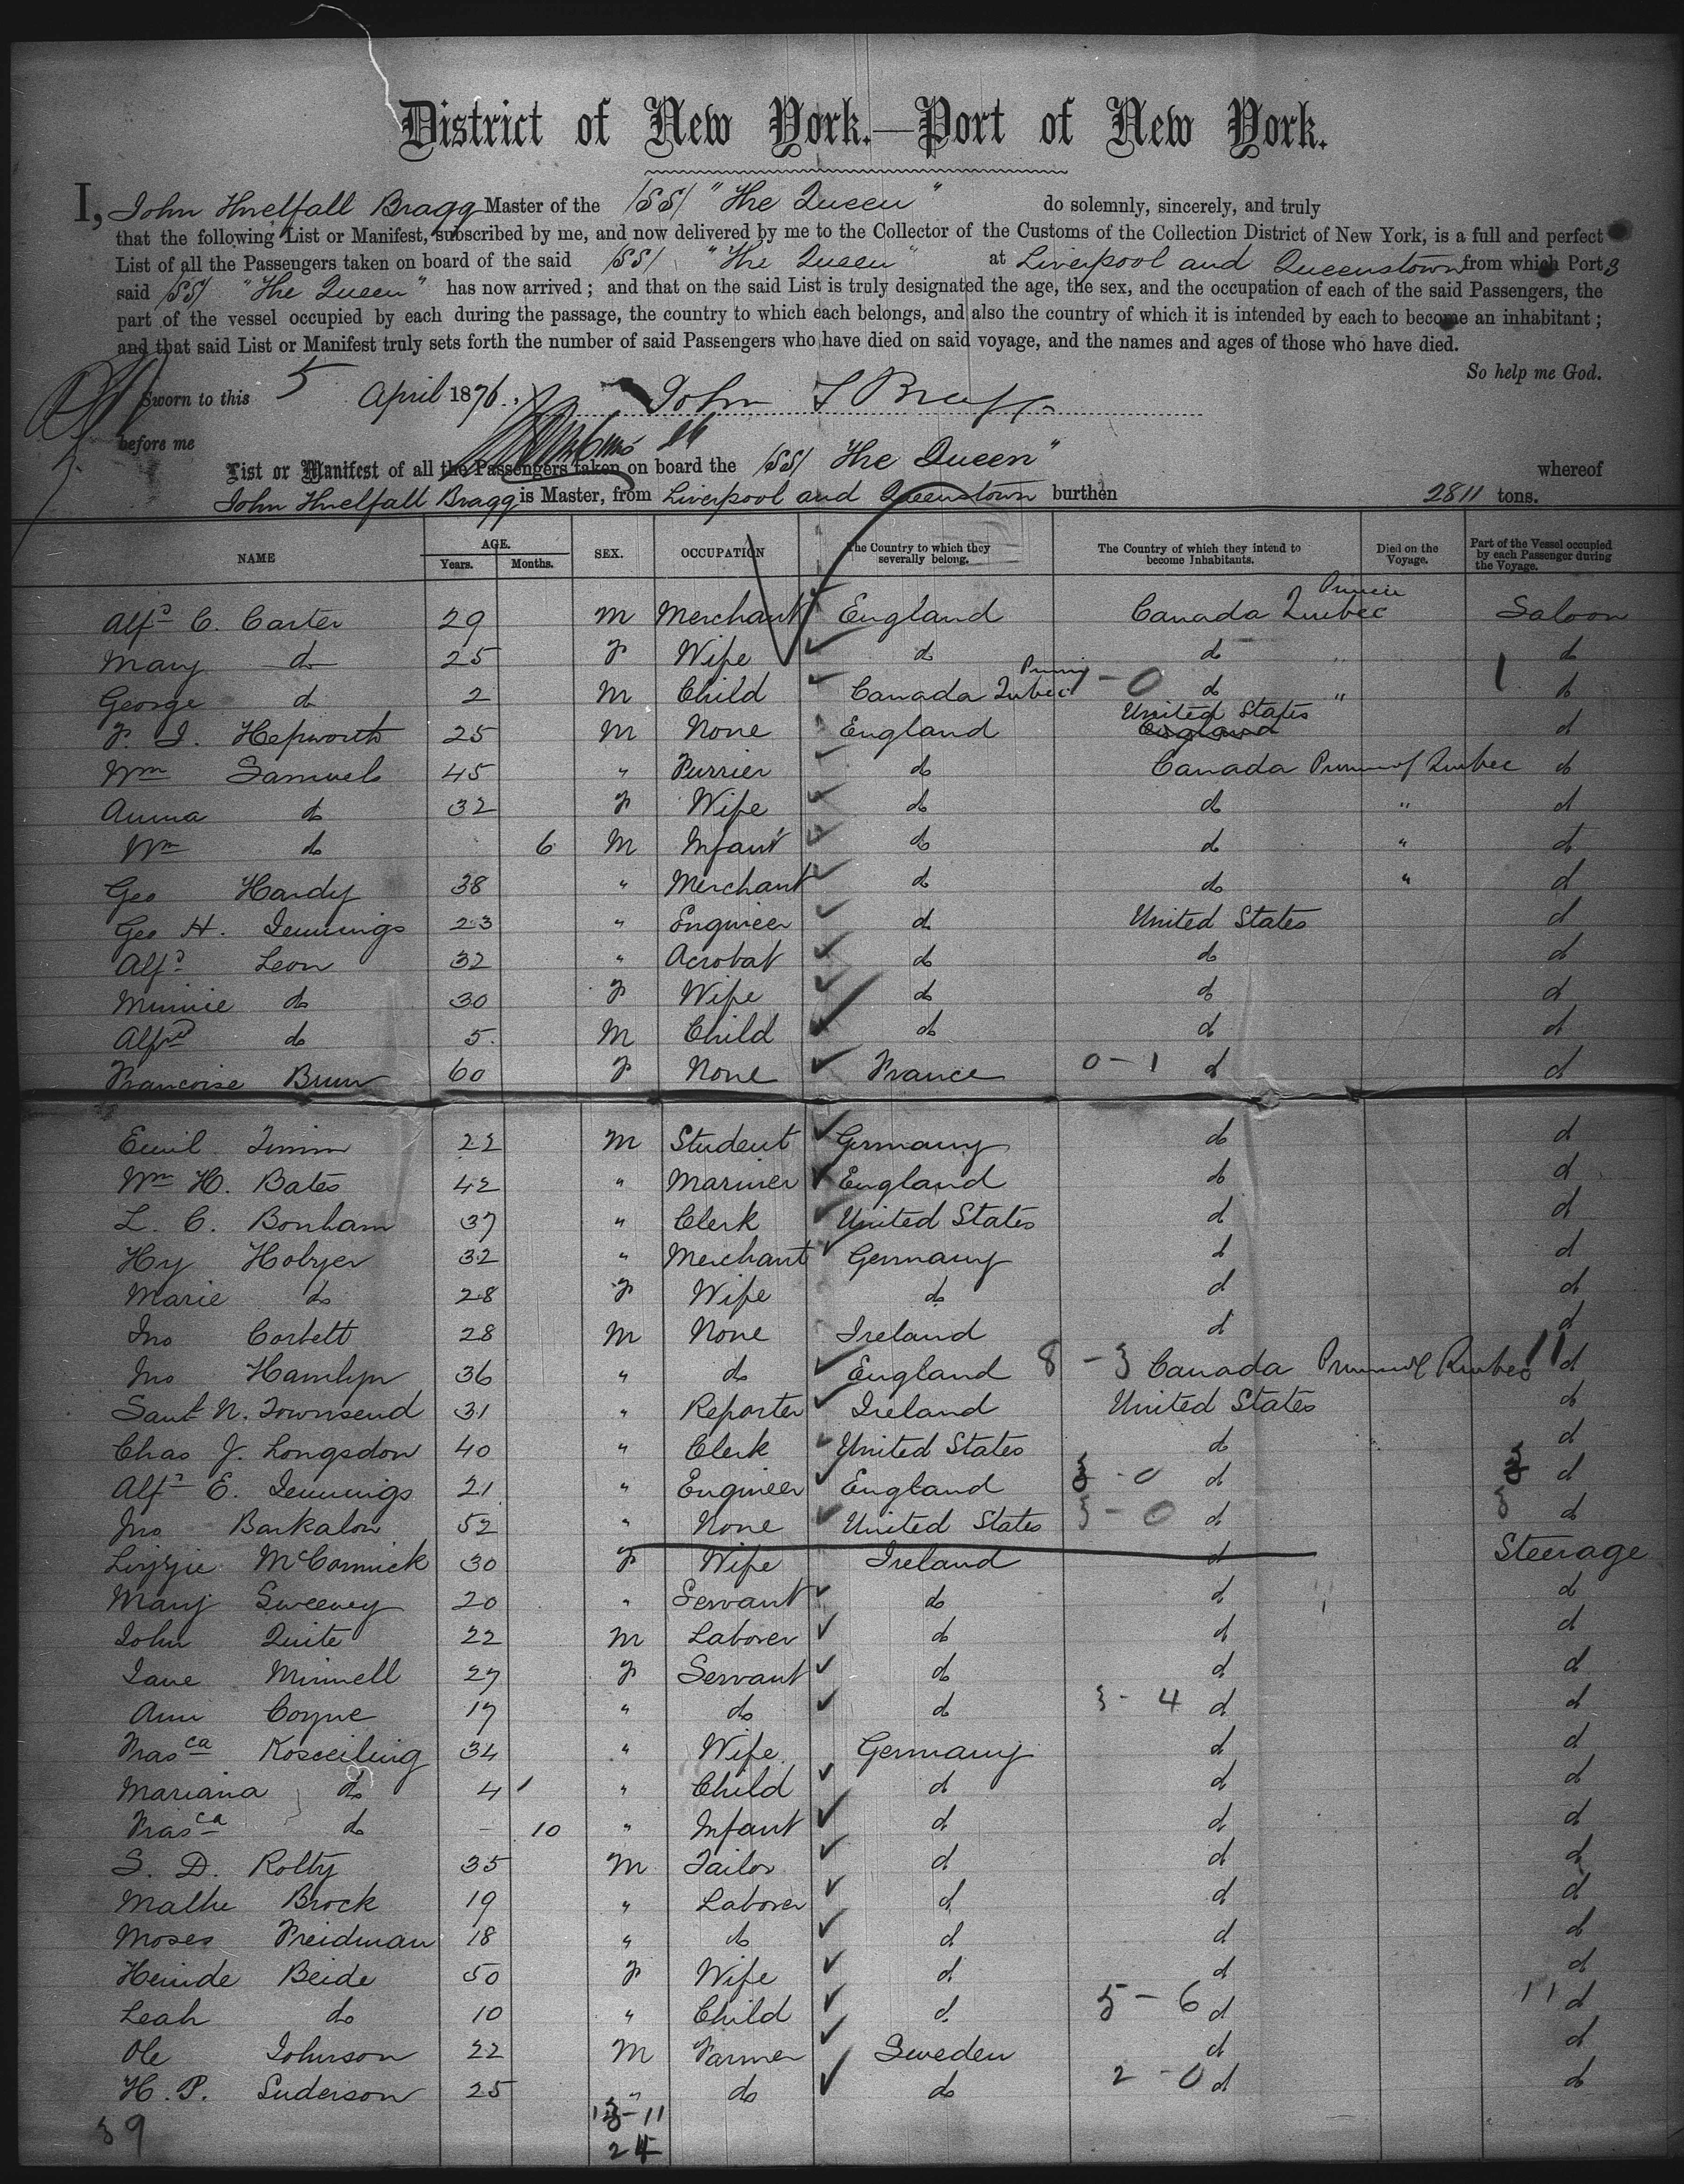 District of New York.—Port of New York.
I, John Threlfall Bragg Master of the /SS/ "The Queen" do solemnly, sincerely, and truly
that the following List or Manifest, subscribed by me, and now delivered by me to the Collector of the Customs of the Collection District of New York, is a full and perfect
List of all the Passengers taken on board of the said /SS/ "The Queen" at Liverpool and Queenstown from which Port s
said /SS/ "The Queen" has now arrived; and that on the said List is truly designated the age, the sex, and the occupation of each of the said Passengers, the
part of the vessel occupied by each during the passage, the country to which each belongs, and also the country of which it is intended by each to become an inhabitant;
and that said List or Manifest truly sets forth the number of said Passengers who have died on said voyage, and the names and ages of those who have died.
So help me God.
Sworn to this 5 April 1876. John T Bragg
before me
List or Manifest of all the Passengers taken on board the /SS/ "The Queen" whereof
John Threlfall Bragg is Master, from Liverpool and Queenstown burthen 2811 tons.
NAME AGE. Years. Months. SEX. OCCUPATION The Country to which they severally belong. The Country of which they intend to become Inhabitants. Died on the Voyage. Part of the Vessel occupied by each Passenger during the Voyage.
Alfd C. Carter 29 M Merchant England Canada Quebec Saloon
Mary do 25 F Wife do do " do
George do 2 M Child Canada Quebec - 0 do " 1 do
F. I. Hepworth 25 M None England United States England do
Wm Samuels 45 " Furrier do Canada Quebec do
Anna do 32 F Wife do do " do
Wm do 6 M Infant do do " do
Geo Hardy 38 " Merchant do do " do
Geo H. Jennings 23 " Engineer do United States do
Alfd Leon 32 " Acrobat do do do
Minnie do 30 F Wife do do do
Alfd do 5 M Child do do do
Francoise Brun 60 F None France 0 - 1 do do
Emil Timm 22 M Student Germany do do
Wm H. Bates 42 " Mariner England do do
L. C. Bonham 37 " Clerk United States do do
Hy Holzer 32 " Merchant Germany do do
Marie do 28 F Wife do do do
Jno Corbett 28 M None Ireland do do
Jno Hamlyn 36 " do England 8 - 3 Canada Quebec 11 do
Saml N. Townsend 31 " Reporter Ireland United States do
Chas J. Longsdon 40 " Clerk United States do do
Alfd E. Jennings 21 " Engineer England 3 - 0 do 3 do
Jno Barkalow 52 " None United States 3 - 0 do 3 do
Lizzie McCormick 30 F Wife Ireland do Steerage
Mary Sweeney 20 " Servant do do do
John Quite 22 M Laborer do do do
Jane Minnell 27 F Servant do do do
Ann Coyne 17 " do do 3 - 4 do do
Frasca Kosceiling 34 " Wife Germany do do
Mariana do 4 " Child do do do
Frasca do - 10 " Infant do do do
S. D. Rolty 35 M Tailor do do do
Malhe Brock 19 " Laborer do do do
Moses Freidman 18 " do do do do
Heinde Beide 50 F Wife do do do
Leah do 10 " Child do 5 - 6 do 11 do
Ole Johnson 22 M Farmer Sweden do do
H. P. Suderson 25 " do do 2 - 0 do do
39 13-11
24